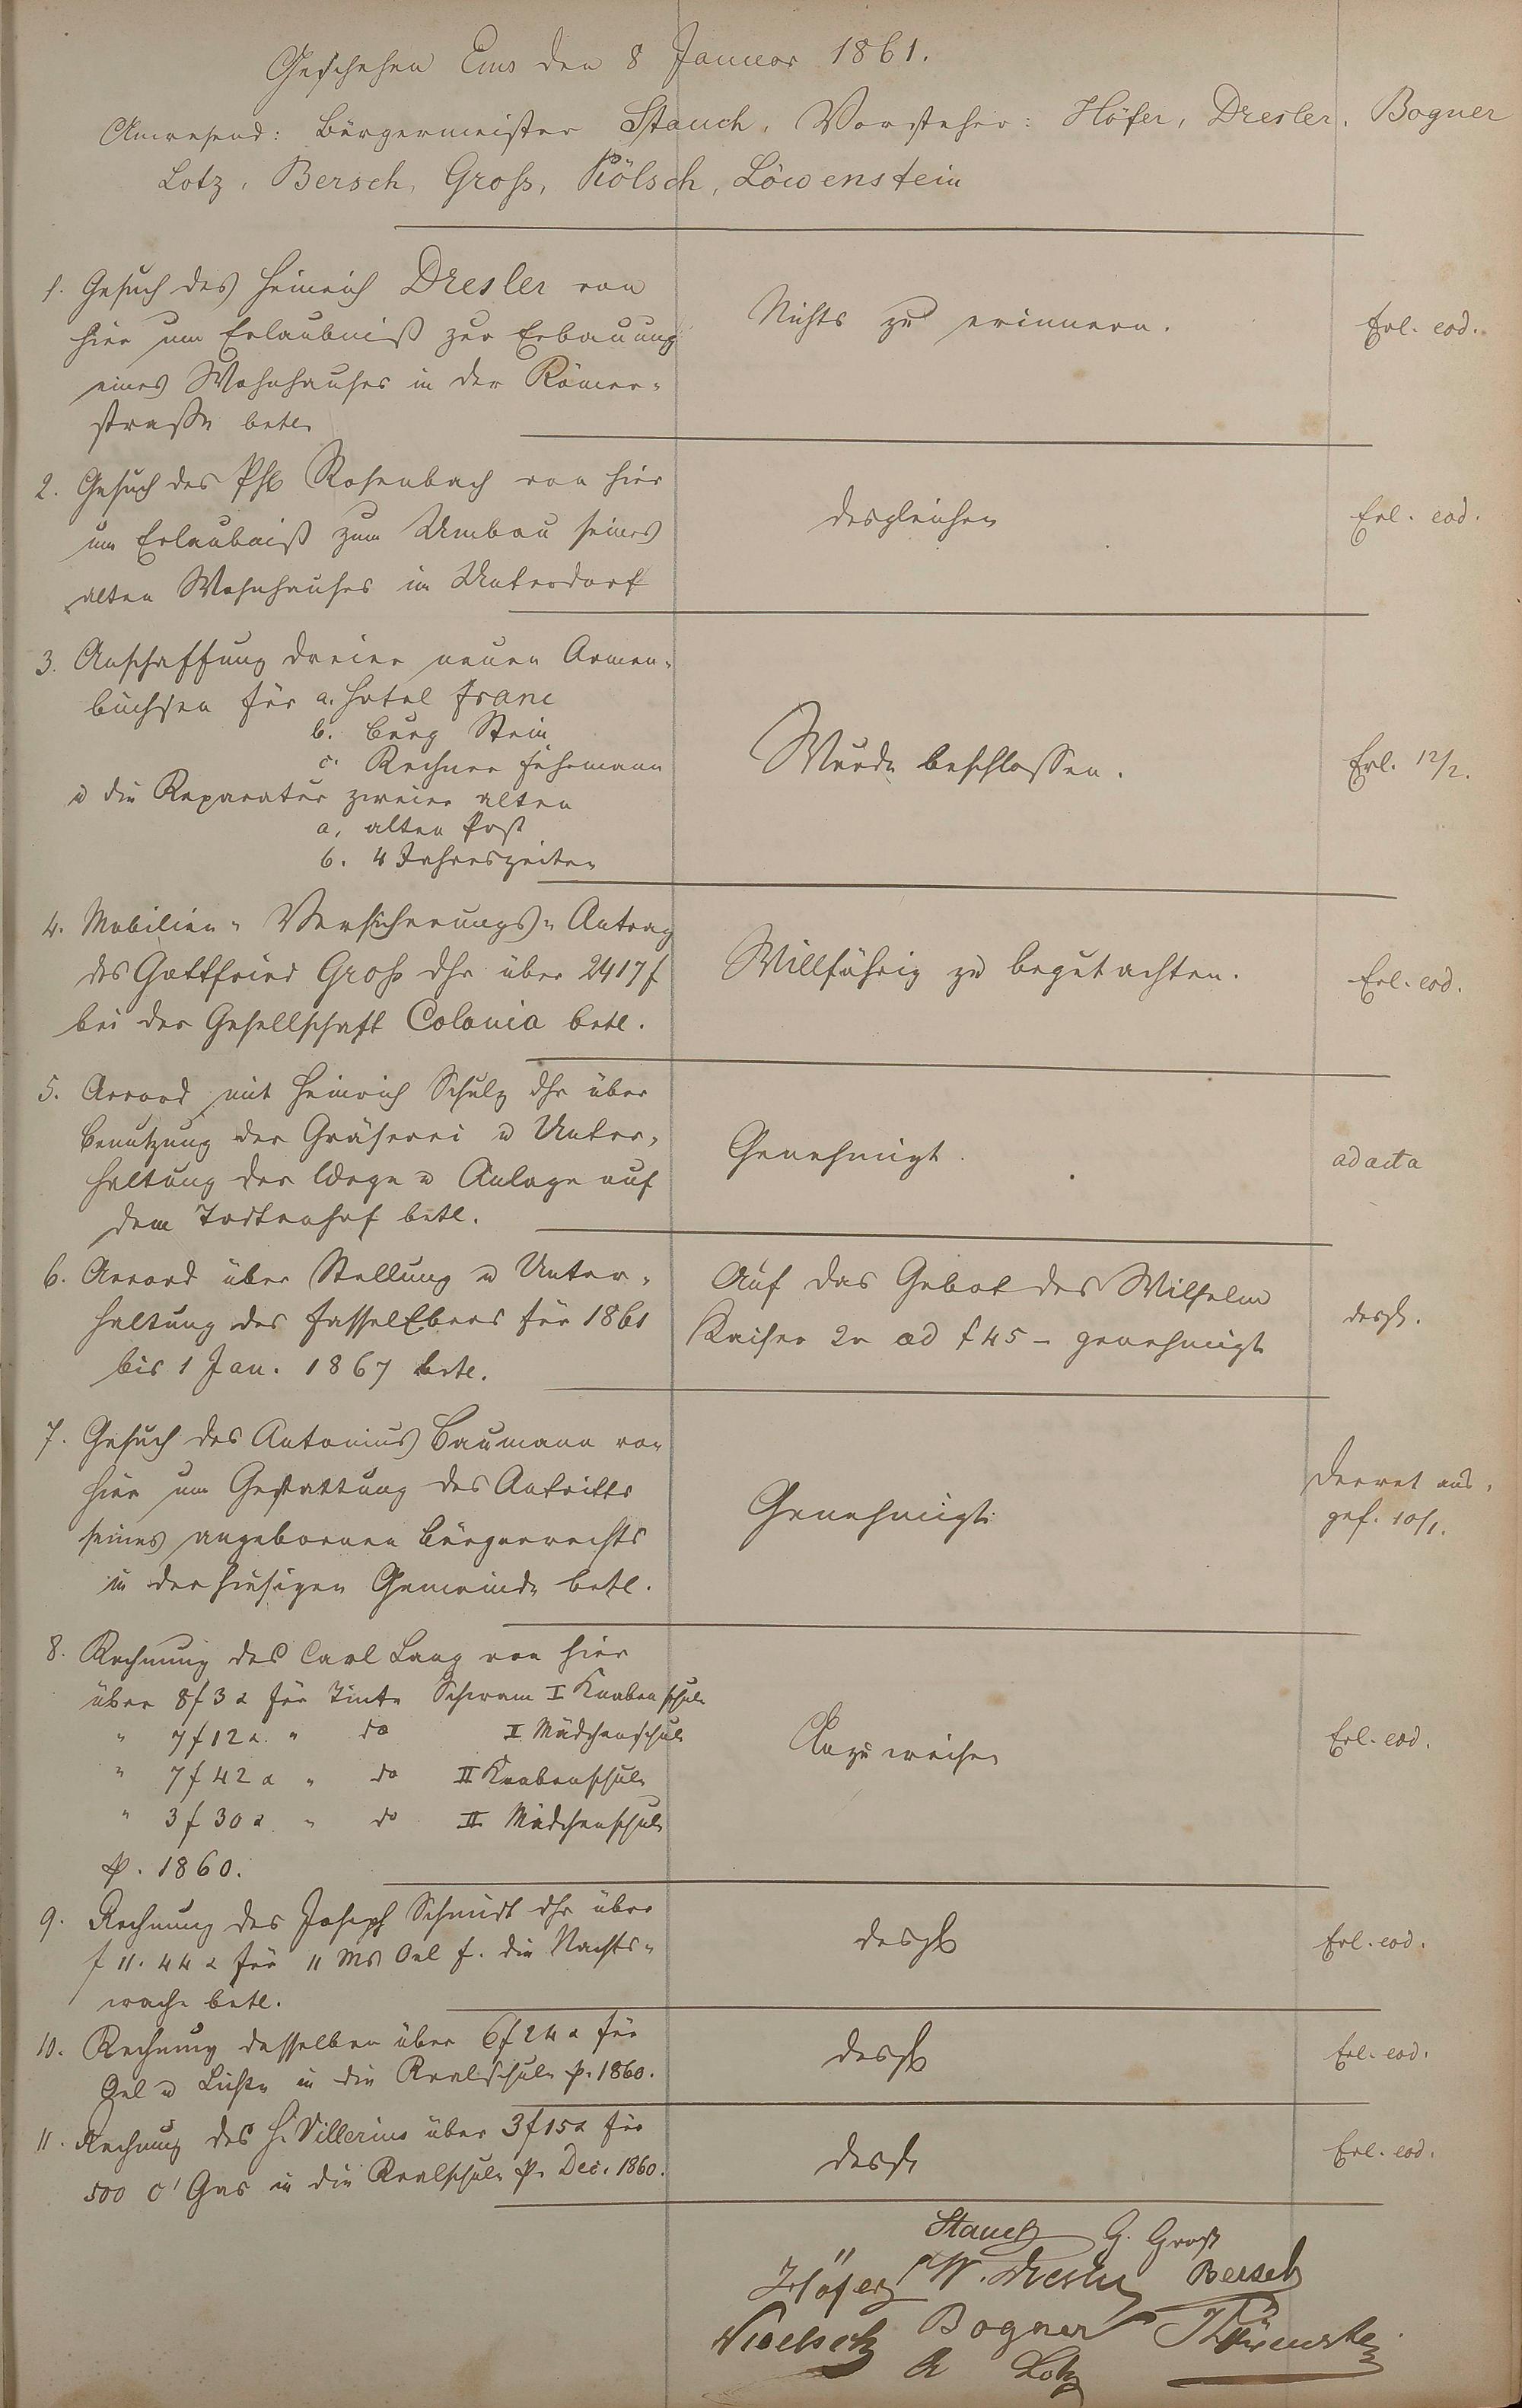 Geschehen Ems den 8 Januar 1861.
Anwesend: Bürgermeister Stauch, Vorsteher: Höfer, Dresler, Bogner
Lotz, Bersch, Groß, Kölsch, Löwenstein
1. Gesuch des Heinrich Dresler von
hier um Erlaubniß zur Erbauung
eines Wohnhauses in der Römer-
straße betr.
Nichts zu erinnern.
Erl. eod.
2. Gesuch des Ph Rosenbach von hier
um Erlaubniß zum Umbau seines
alten Wohnhauses im Unterdorf
desgleichen
Erl. eod.
3. Anschaffung dreier neuen Armen-
büchsen für a. Hotel franc
b. Burg Stein
c. Rechner Fuhrmann
u die Reparatur zweier alten
a. alten Post
b. 4 Jahreszeiten
Wurde beschlossen.
Erl. 12/2.
4. Mobilien-Versicherungs-Antrag
des Gottfried Groß dhr über 2417 f
bei der Gesellschaft Colonia betr.
Willfährig zu begutachten.
Erl. eod.
5. Accord mit Heinrich Schulz dhr über
Benutzung der Gräserei u Unter-
haltung der Wege u Anlage auf
dem Todtenhof betr.
Genehmigt.
ad acta
6. Accord über Stellung u Unter-
haltung des Fasselebers für 1861
bis 1 Jan. 1867 betr.
Auf das Gebot des Wilhelm
Kaiser 2r ad f 45 – genehmigt
desgl.
7. Gesuch des Antonius Baumann von
hier um Gestattung des Antritts
seines angebornen Bürgerrechts
in der hiesigen Gemeinde betr.
Genehmigt
Decret aus-
gef. 10/1.
8. Rechnung des Carl Lang von hier
über 8 f 3 x für Tinte Schwam I Knabenschule
" 7 f 12 x " do II Mädchenschule
" 7 f 42 x " do II Knabenschule
" 3 f 30 x " do II Mädchenschule
p. 1860.
Anzuweisen
Erl. eod.
9. Rechnung des Joseph Schmidt dhr über
f 11. 44 x für 11 Ms Oel f. die Nachts-
wache betr.
desgl
Erl. eod.
10. Rechnung desselben über 6 f 24 x für
Oel u Lichte in die Realschule p. 1860.
desgl
Erl. eod.
11. Rechnung des H. Villerius über 3 f 15 x für
500 C' Gas in die Realschule p. Dec. 1860.
desgl
Erl. eod.
Stauch G. Groß
Höfer W. Dresler Bersch
Koelsch Bogner Löwenstein
Lotz